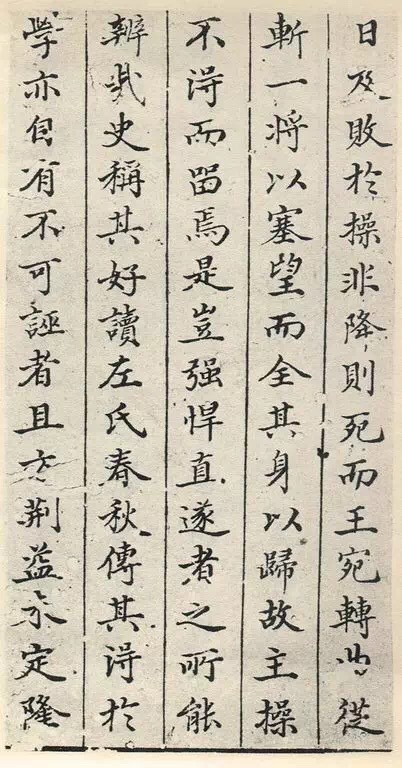 日及敗於操非降則死而王宛轉以從
斬一將以塞望而全其身以歸故主操
不得而留焉是豈强悍直遂者之所能
辨哉史稱其好讀左氏春秋傳其得於
學亦自有不可誣者且方荆益未定隆